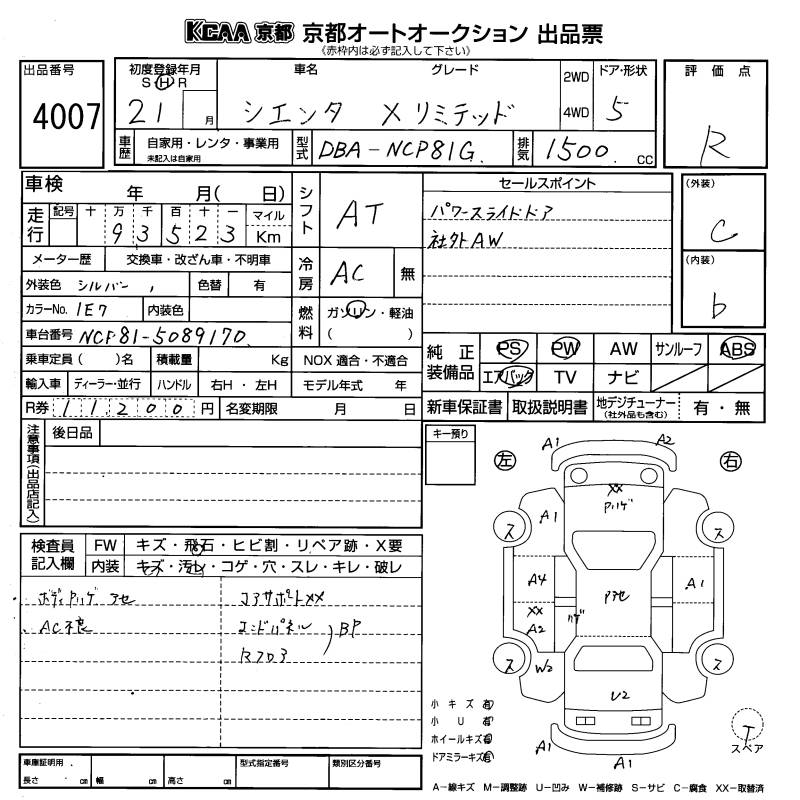 KCAA 京都 京都オートオークション 出品票
(赤枠内は必ず記入して下さい)
出品番号
4007
初度登録年月
S H R
21 月
車名 グレード
シエンタ Xリミテッド
2WD
4WD
ドア・形状
5
評価点
R
車歴
自家用・レンタ・事業用
未記入は自家用
型式
DBA-NCP81G
排気
1500 cc
車検 年 月( 日)
走行
記号 十 万 千 百 十 一 マイル
9 3 5 2 3 Km
シフト
AT
セールスポイント
パワースライドドア
社外AW
(外装)
C
(内装)
b
メーター歴 交換車・改ざん車・不明車
冷房
AC 無
外装色 シルバー 色替 有
カラーNo. 1E7 内装色
燃料
ガソリン・軽油
( )
車台番号 NCP81-5089170
乗車定員 ( )名 積載量 Kg NOX 適合・不適合
輸入車 ディーラー・並行 ハンドル 右H・左H モデル年式 年
R券 11200円 名変期限 月 日
純正装備品
PS PW AW サンルーフ ABS
エアバック TV ナビ
新車保証書 取扱説明書 地デジチューナー (社外品も含む) 有・無
注意事項(出品店記入)
後日品
キー預り
左 右
A1 A2
XX
Pハゲ
A1
ス ス
A4 Pアセ A1
XX
A2
ハゲ
ス ス
W2
U2
A1 A1
検査員記入欄
FW キズ・飛石・ヒビ割・リペア跡・X要
内装 キズ・汚レ・コゲ・穴・スレ・キレ・破レ
ボディPハゲ アセ
AC不良
コアサポートXX
エンドパネル
Rフロア
BP
小キズ 有
小U 有
ホイールキズ 有
ドアミラーキズ 有
T
スペア
車庫証明用
長さ cm 幅 cm 高さ cm
型式指定番号
類別区分番号
A-線キズ M-調整跡 U-凹み W-補修跡 S-サビ C-腐食 XX-取替済